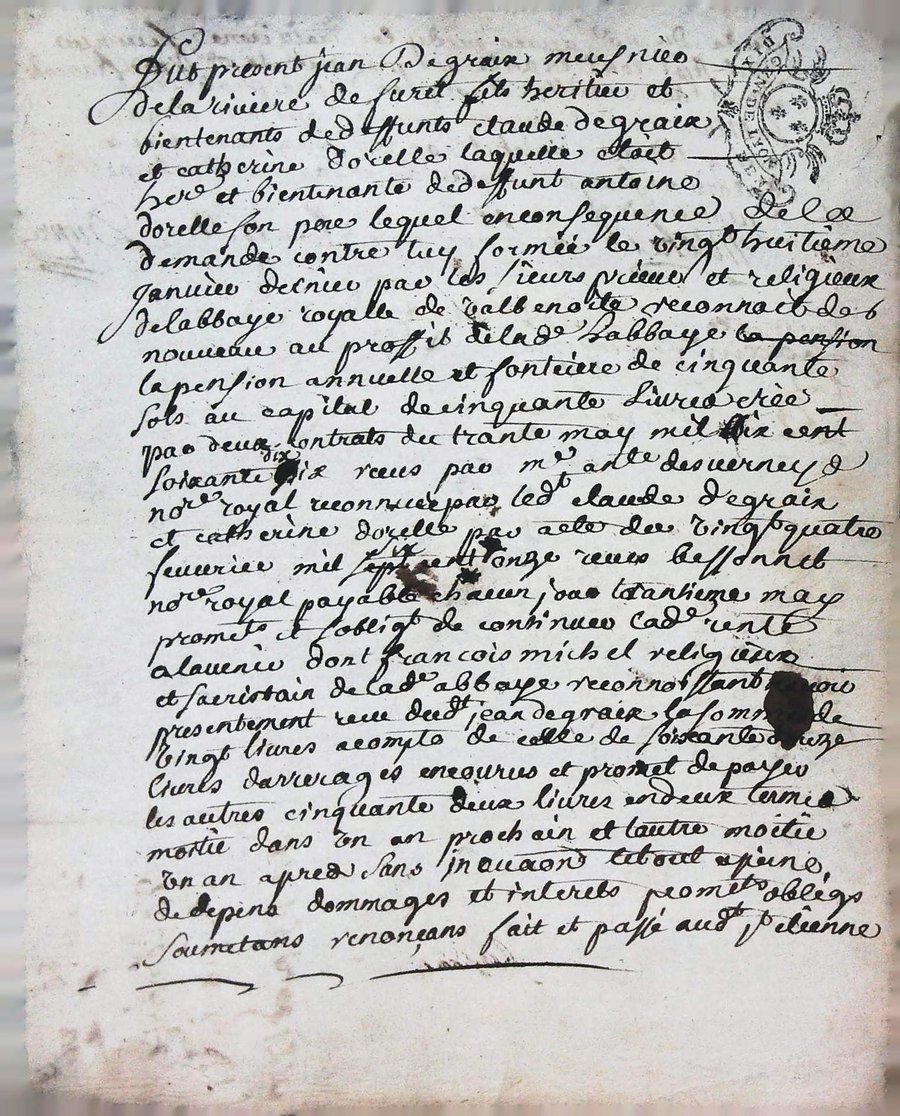 Fut present jean Degraix meusnier
de la riviere de furet fils heritier et
bientenants de deffunts claude degraix
et catherine dorelle laquelle etoit
here et bientenante de deffunt antoine
dorelle son pere lequel en consequence de la
demande contre luy formée le vingt huitieme
janvier dernier par les sieurs prieur et religieux
de labbaye royalle de valbenoite reconnoit de
nouveau au proffit de lade habbaye la pension
la pension annuelle et fonciere de cinquante
sols au capital de cinquante livres crée
par deux contrats du trante may mil six cent
soixante dix reçus par me ante desverney
nore royal reconnue par ledt claude degraix
et catherine dorelle par acte du vingt quatre
feuvrier mil sept cent onze reçus bessonnet
nore royal payable chacun jour trantieme may
promets et sobligt de continuer lade rente
a lavenir dont francois michel religieux
et sacristain de lade abbaye reconnoissant avoir
presentement receu dudt jean degraix la somme de
vingt livres acompte de celle de soixante douze
livres darrerages encourus et promet de payer
les autres cinquante deux livres en deux termes
moitié dans un an prochain et lautre moitié
un an apres sans le tout a peine
de depens dommages et interets promets obligs
soumetans renonçans fait et passé audt st etienne